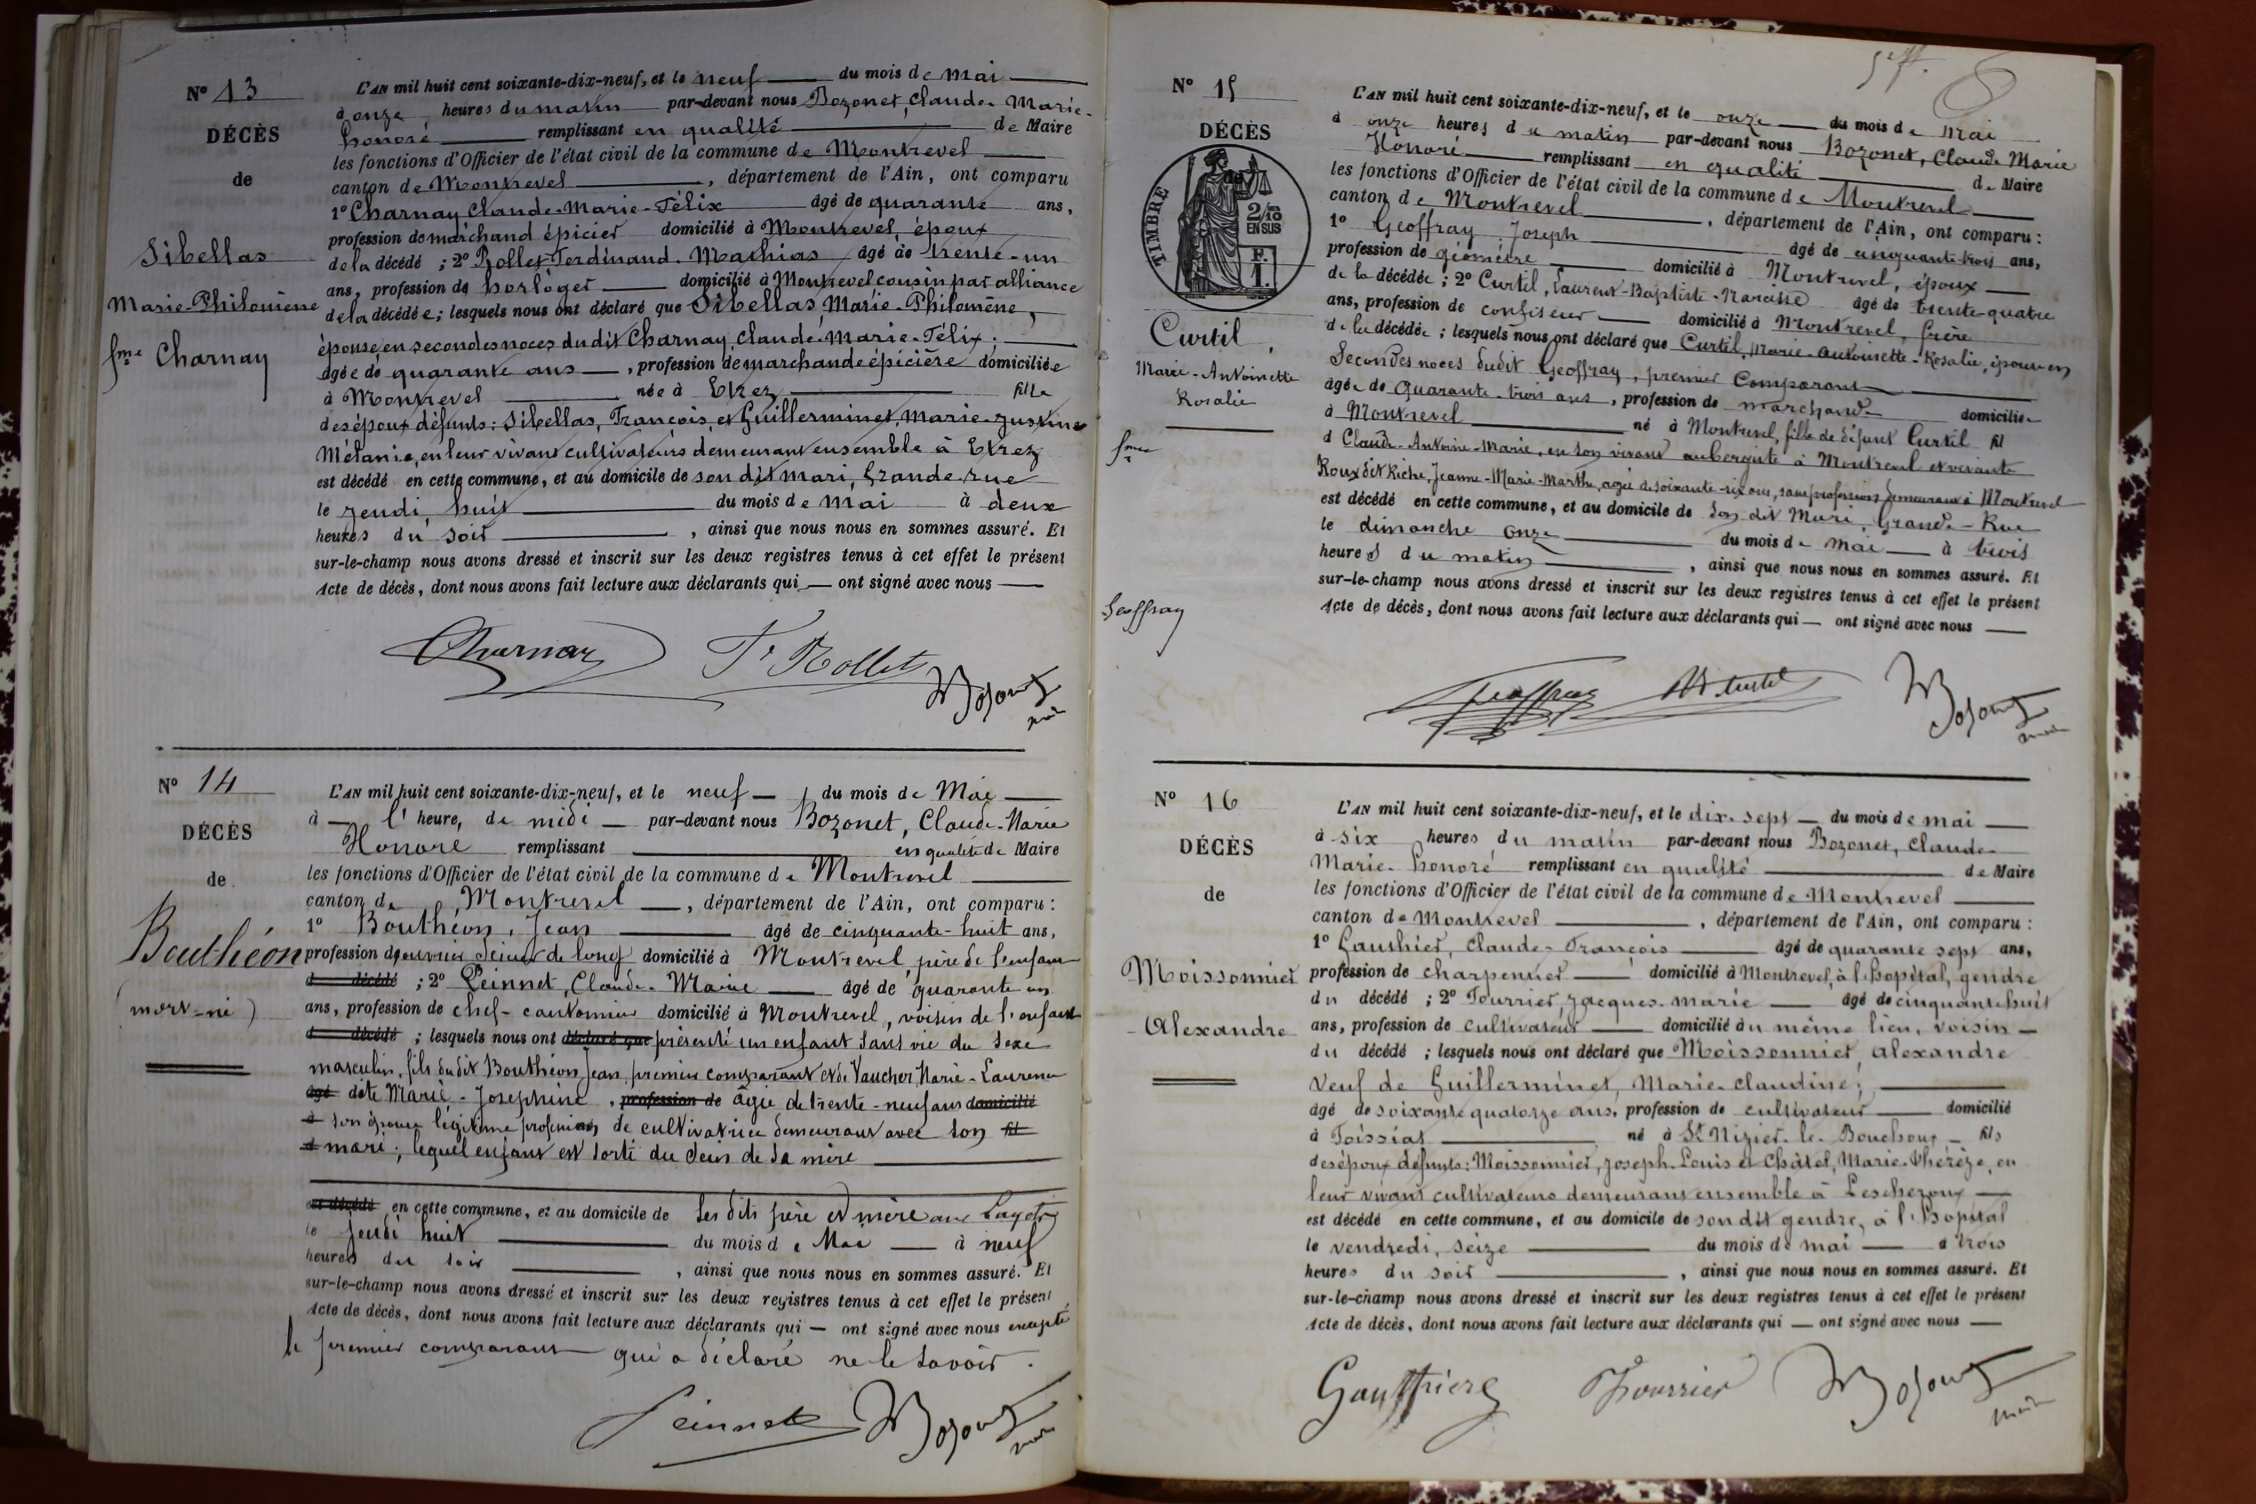 N° 13
DÉCÈS
de
Sibellas
Marie-Philomène
fme Charnay
L'AN mil huit cent soixante-dix-neuf, et le neuf du mois de mai
à onze heures du matin par-devant nous Bozonet, Claude-Marie-
honoré remplissant en qualité de Maire
les fonctions d'Officier de l'état civil de la commune de Montrevel
canton de Montrevel, département de l'Ain, ont comparu
1° Charnay Claude-Marie-Félix âgé de quarante ans,
profession de marchand épicier domicilié à Montrevel, époux
de la décédé ; 2° Rollet Ferdinand Mathias âgé de trente-un
ans, profession de horloger domicilié à Montrevel cousin par alliance
de la décédée ; lesquels nous ont déclaré que Sibellas Marie-Philomène,
épouse en secondes noces du dit Charnay, Claude-Marie-Félix.
âgée de quarante ans, profession de marchande épicière domiciliée
à Montrevel née à Etrez fille
des époux défunts: Sibellas, François, et Guillerminet, Marie-Justine
Mélanie, en leur vivant cultivateurs demeurant ensemble à Etrez
est décédé en cette commune, et au domicile de son dit mari, Grande rue
le jeudi, huit du mois de mai à deux
heures du soir, ainsi que nous nous en sommes assuré. Et
sur-le-champ nous avons dressé et inscrit sur les deux registres tenus à cet effet le présent
Acte de décès, dont nous avons fait lecture aux déclarants qui — ont signé avec nous
Charnay F. Rollet Bozonet
maire
N° 14
DÉCÈS
de
Bouthéon
(mort-né)
L'AN mil huit cent soixante-dix-neuf, et le neuf du mois de Mai
à l'heure, de midi par-devant nous Bozonet, Claude-Marie
Honoré remplissant en qualité de Maire
les fonctions d'Officier de l'état civil de la commune de Montrevel
canton de Montrevel, département de l'Ain, ont comparu :
1° Bouthéon, Jean âgé de cinquante-huit ans,
profession d'ouvrier scieur de long domicilié à Montrevel, père de l'enfant
d décédé ; 2° Peinnet, Claude-Marie âgé de quarante un
ans, profession de chef-cantonnier domicilié à Montrevel, voisin de l'enfant
d décédé ; lesquels nous ont déclaré que présenté un enfant sans vie du sexe
masculin, fils du dit Bouthéon Jean premier comparant et de Vaucher Marie-Laurence
âgé dite Marie-Josephine, profession de âgée de trente-neuf ans domicilié
à son épouse légitime profession de cultivatrice demeurant avec son fil
d mari; lequel enfant est sorti du sein de sa mère
est décédé en cette commune, et au domicile de ses dits père et mère aux
le jeudi huit du mois de Mai à neuf
heures du soir, ainsi que nous nous en sommes assuré. Et
sur-le-champ nous avons dressé et inscrit sur les deux registres tenus à cet effet le présent
Acte de décès, dont nous avons fait lecture aux déclarants qui — ont signé avec nous excepté
le premier comparant qui a déclaré ne le savoir.
Peinnet Bozonet
maire
N° 15
DÉCÈS
de
TIMBRE
2/10
EN SUS
F.
1.
Curtil,
Marie-Antoinette
Rosalie
fme
Geoffray
L'AN mil huit cent soixante-dix-neuf, et le onze du mois de Mai
à onze heures du matin par-devant nous Bozonet, Claude Marie
Honoré remplissant en qualité de Maire
les fonctions d'Officier de l'état civil de la commune de Montrevel
canton de Montrevel, département de l'Ain, ont comparu :
1° Geoffray Joseph âgé de cinquante trois ans,
profession de géomètre domicilié à Montrevel, époux
de la décédée ; 2° Curtil, Laurent-Baptiste-Narcisse âgé de trente-quatre
ans, profession de confiseur domicilié à Montrevel, frère
de la décédée ; lesquels nous ont déclaré que Curtil, Marie-Antoinette-Rosalie, épouse en
secondes noces dudit Geoffray, premier Comparant
âgée de Quarante-trois ans, profession de marchande domiciliée
à Montrevel né à Montrevel, fille de défunt Curtil fil
d Claude-Antoine-Marie, en son vivant aubergiste à Montrevel et vivante
Roux dit Riche, Jeanne-Marie-Marthe, agée de soixante-six ans, sans profession demeurant à Montrevel
est décédé en cette commune, et au domicile de son dit Mari, Grande-Rue
le dimanche onze du mois de mai à trois
heures du matin, ainsi que nous nous en sommes assuré. Et
sur-le-champ nous avons dressé et inscrit sur les deux registres tenus à cet effet le présent
Acte de décès, dont nous avons fait lecture aux déclarants qui — ont signé avec nous
Geoffray Curtil Bozonet
maire
N° 16
DÉCÈS
de
Moissonnier
Alexandre
L'AN mil huit cent soixante-dix-neuf, et le dix-sept du mois de mai
à six heures du matin par-devant nous Bozonet, Claude-
Marie-honoré remplissant en qualité de Maire
les fonctions d'Officier de l'état civil de la commune de Montrevel
canton de Montrevel, département de l'Ain, ont comparu :
1° Gauthier, Claude-François âgé de quarante sept ans,
profession de charpentier domicilié à Montrevel, à l'hopital, gendre
du décédé ; 2° Tourrier, Jacques-marie âgé de cinquante huit
ans, profession de cultivateur domicilié au même lieu, voisin
du décédé ; lesquels nous ont déclaré que Moissonnier, alexandre
veuf de Guillerminet, Marie-claudine;
âgé de soixante quatorze ans, profession de cultivateur domicilié
à Foissiat né à St Nizier-le-Bouchoux fils
des époux défunts: Moissonnier, Joseph-Louis et Châtel, Marie-thérèze, en
leur vivant cultivateurs demeurant ensemble à Lescheroux
est décédé en cette commune, et au domicile de son dit gendre, à l'hopital
le vendredi, seize du mois de mai à trois
heures du soir, ainsi que nous nous en sommes assuré. Et
sur-le-champ nous avons dressé et inscrit sur les deux registres tenus à cet effet le présent
Acte de décès, dont nous avons fait lecture aux déclarants qui — ont signé avec nous
Gauthier Thourrier Bozonet
maire